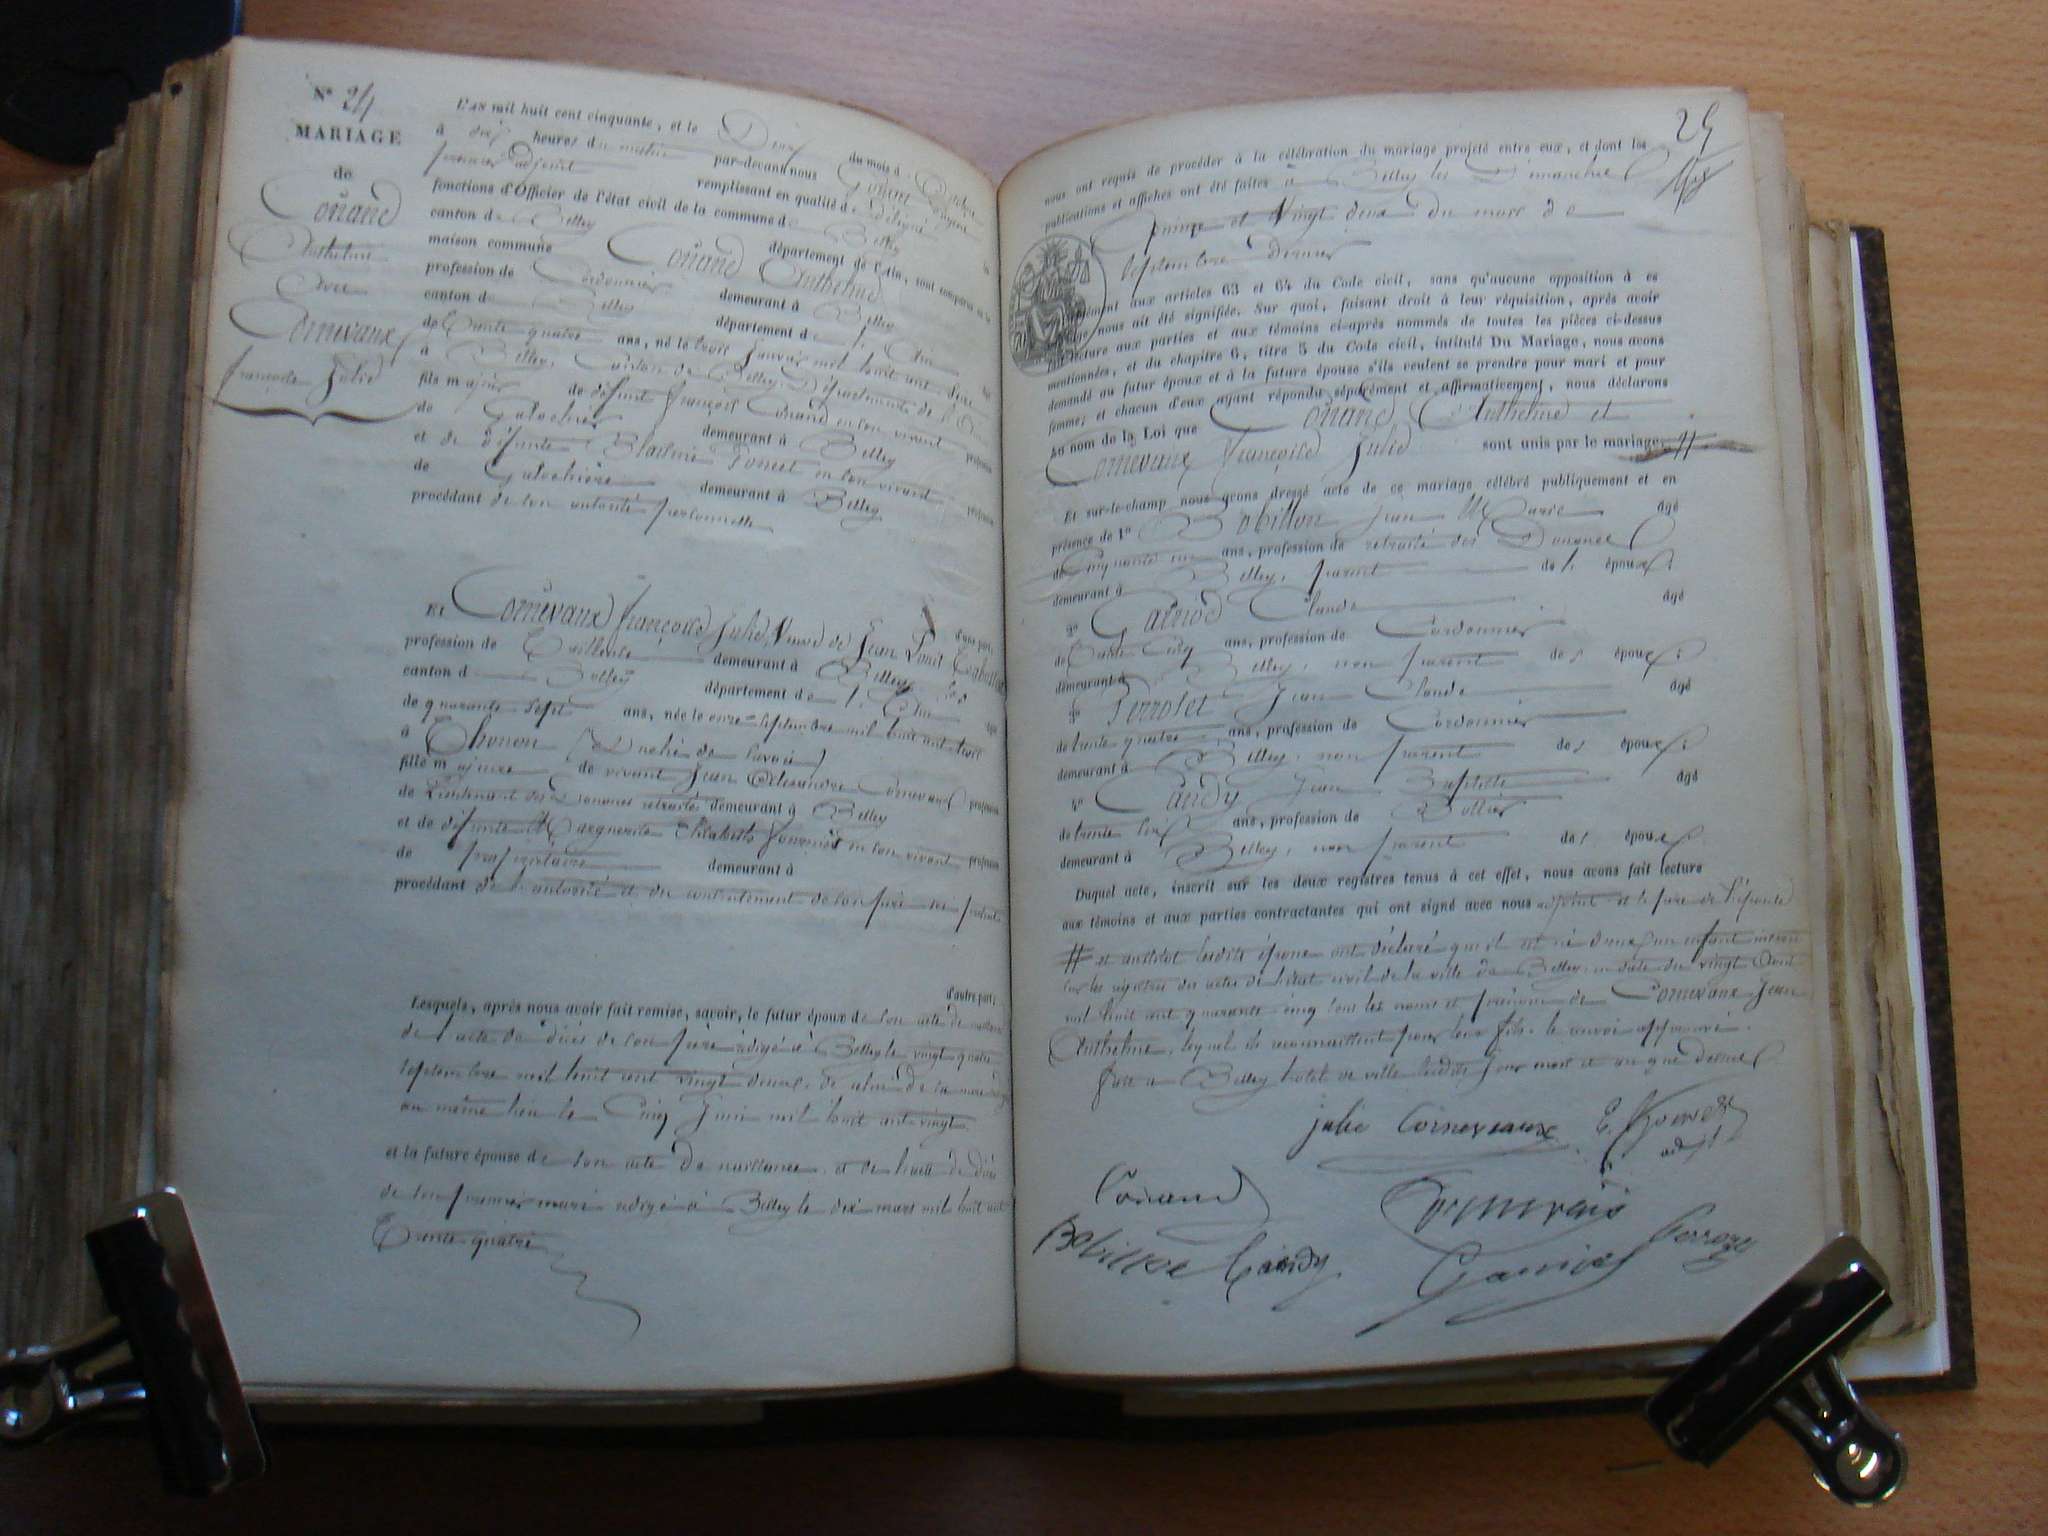 N° 24
MARIAGE
de
Coüand
Anthelme
Avec
Cornevaux
françoise Julie
L'AN mil huit cent cinquante, et le Deux du mois d'Octobre
à dix heures du matin par-devant nous
premier adjoint remplissant en qualité de délégué
fonctions d'Officier de l'état civil de la commune de Belley
canton de Belley département de l'Ain, sont comparus en la
maison commune Coüand Anthelme
profession de Cordonnier demeurant à Belley
canton de Belley département de l'Ain
de trente quatre ans, né le trois Janvier mil huit cent seize
à Belley, Canton de Belley, Département de l'Ain
fils majeur de défunt françois Coüand en son vivant profession
de Galochier demeurant à Belley
et de défunte Blasine Poncet en son vivant profession
de Galochière demeurant à Belley
procédant de son autorité personnelle
d'une part;
Et Cornevaux françoise Julie, Veuve de Jean Louis
profession de Tailleuse demeurant à Belley
canton d Belley département de l'Ain
de quarante sept ans, née le onze septembre mil huit cent trois
à Thonon (Duché de Savoie)
fille majeure de vivant Jean Alexandre Cornevaux profession
de Lieutenant des Douanes retraité demeurant à Belley
et de défunte Marguerite Elisabeth fournier en son vivant profession
de propriétaire demeurant à
procédant de l'autorité et du consentement de son père ici présent
d'autre part;
Lesquels, après nous avoir fait remise, savoir, le futur époux de son acte de naissance
de l'acte de décès de son père rédigé à Belley le vingt quatre
septembre mil huit cent vingt deux, de celui de sa mère
au même lieu le Cinq Juin mil huit cent vingt
et la future épouse de son acte de naissance et de l'acte de décès
de son premier mari rédigé à Belley le dix mars mil huit cent
Trente quatre
25
nous ont requis de procéder à la célébration du mariage projeté entre eux, et dont les
publications et affiches ont été faites à Belley les Dimanches
Quinze et Vingt deux du mois de
septembre dernier
conformément aux articles 63 et 64 du Code civil, sans qu'aucune opposition à ce
mariage nous ait été signifiée. Sur quoi, faisant droit à leur réquisition, après avoir
lecture aux parties et aux témoins ci-après nommés de toutes les pièces ci-dessus
mentionnées, et du chapitre 6, titre 5 du Code civil, intitulé Du Mariage, nous avons
demandé au futur époux et à la future épouse s'ils veulent se prendre pour mari et pour
femme; et chacun d'eux ayant répondu séparément et affirmativement, nous déclarons
au nom de la Loi que Coüand Anthelme et
Cornevaux Françoise Julie sont unis par le mariage. #
Et sur-le-champ nous avons dressé acte de ce mariage célébré publiquement et en
présence de 1° Bobillon Jean Marie âgé
de Cinquante six ans, profession de retraité des Douanes
demeurant à Belley, parent de l' époux;
2° Garnod Claude âgé
de Trente Cinq ans, profession de Cordonnier
demeurant à Belley, non parent des époux;
3° Perrolet Jean Claude âgé
de trente quatre ans, profession de Cordonnier
demeurant à Belley, non parent des époux;
4° Candy Jean Baptiste âgé
de trente six ans, profession de Bottier
demeurant à Belley, non parent des époux.
Duquel acte, inscrit sur les deux registres tenus à cet effet, nous avons fait lecture
aux témoins et aux parties contractantes qui ont signé avec nous adjoint et le père de l'épouse
# et aussitôt lesdits époux ont déclaré qu'il est né d'eux un enfant inscrit
sur les registres des actes de l'état civil de la ville de Belley en date du vingt Août
mil huit cent quarante cinq sous les noms et prénoms de Cornevaux Jean
Anthelme, lequel ils reconnaissent pour leur fils. le renvoi approuvé.
fait à Belley hôtel de ville lesdits jour mois et an que dessus
julie Cornevaux
adjt
Coüand
Bobillon Candy